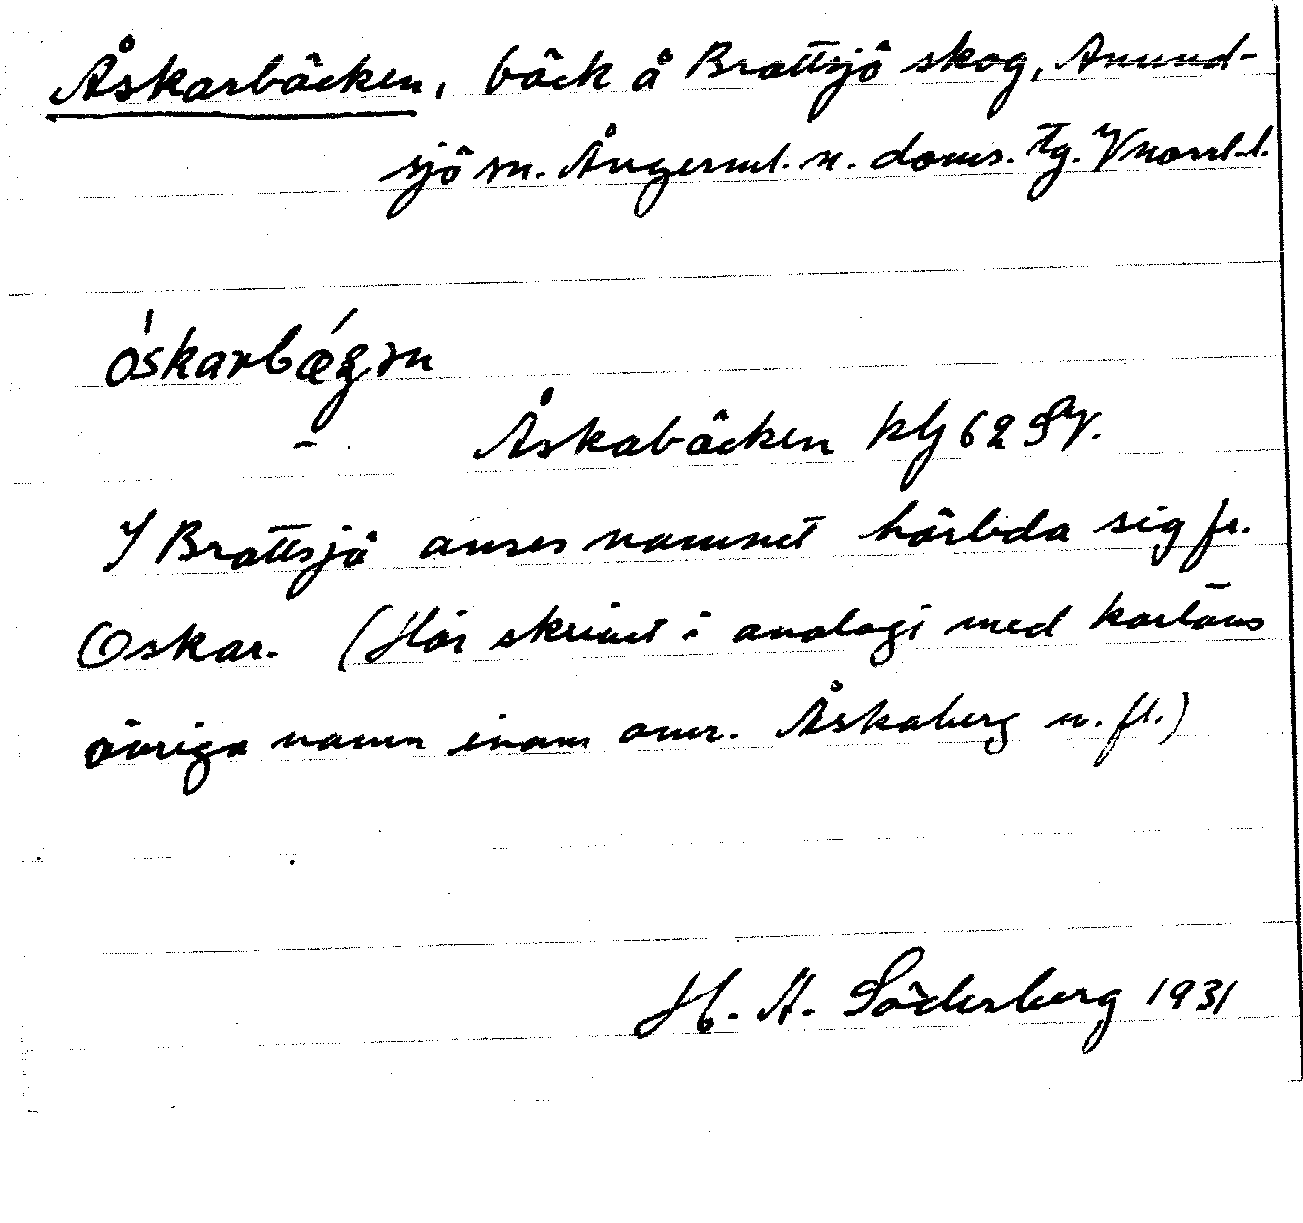 Åskarbäcken, bäck å Brattsjö skog, Anund-
sjö sn. Ångerml. n. doms. tg. Vnorrl. l.
óskarbǽgɜn
- Åskabäcken klj 62 SV.
I Brattsjö anses namnet härleda sig fr.
Oskar. (Här skrivet i analogi med kartans
övriga namn inom omr. Åskaberg m. fl.)
H. A. Söderberg 1931